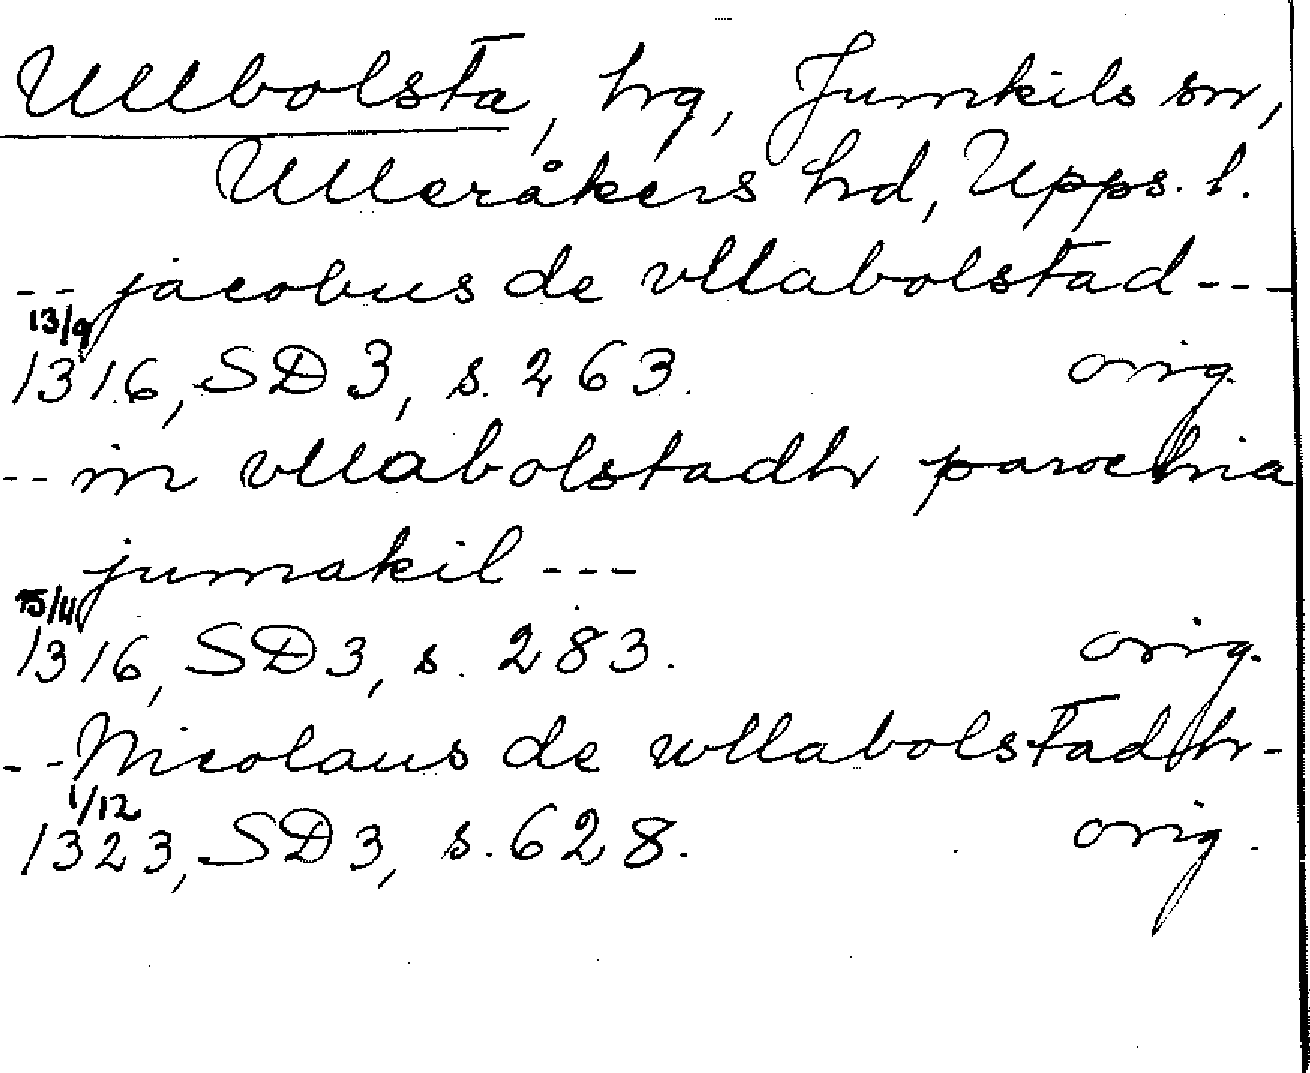 Ullbolsta, hg, Jumkils sn,
Ulleråkers hd, Upps. l.
-- jacobus de vllabolstad ---
13/9
1316, SD 3, s. 263. orig.
-- in vllabolstadh parochia
jumakil ---
15/4
1316, SD 3, s. 283. orig.
-- Nicolaus de wllabolstadh -
1/12
1323, SD 3, s. 628. orig.